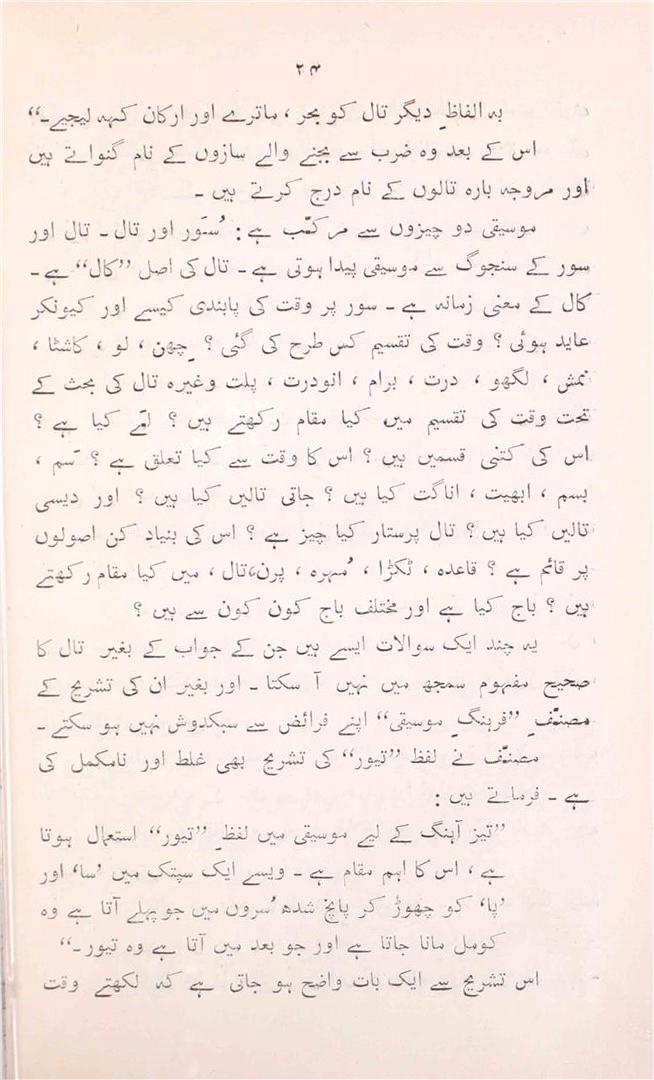 ۲۴
بہ الفاظِ دیگر تال کو بحر ، ماترے اور ارکان کہہ لیجیے۔“
اس کے بعد وہ ضرب سے بجنے والے سازوں کے نام گنواتے ہیں
اور مروجہ بارہ تالوں کے نام درج کرتے ہیں ۔
موسیقی دو چیزوں سے مرکّب ہے : سُور اور تال ۔ تال اور
سور کے سنجوگ سے موسیقی پیدا ہوتی ہے ۔ تال کی اصل ”کال“ ہے ۔
کال کے معنی زمانہ ہے ۔ سور پر وقت کی پابندی کیسے اور کیونکر
عاید ہوئی ؟ وقت کی تقسیم کس طرح کی گئی ؟ چھِن ، لو ، کاشٹا ،
نمش ، لگھو ، درت ، برام ، انودرت ، پلت وغیرہ تال کی بحث کے
تحت وقت کی تقسیم میں کیا مقام رکھتے ہیں ؟ لَے کیا ہے ؟
اس کی کتنی قسمیں ہیں ؟ اس کا وقت سے کیا تعلق ہے ؟ سَم ،
بسم ، ابھیت ، اناگت کیا ہیں ؟ جاتی تالیں کیا ہیں ؟ اور دیسی
تالیں کیا ہیں ؟ تال پرستار کیا چیز ہے ؟ اس کی بنیاد کن اصولوں
پر قائم ہے ؟ قاعدہ ، ٹکڑا ، مُہرہ ، پرن،تال ، میں کیا مقام رکھتے
ہیں ؟ باج کیا ہے اور مختلف باج کون کون سے ہیں ؟
یہ چند ایک سوالات ایسے ہیں جن کے جواب کے بغیر تال کا
صحیح مفہوم سمجھ میں نہیں آ سکتا ۔ اور بغیر ان کی تشریح کے
مصنّفِ ”فرہنگِ موسیقی“ اپنے فرائض سے سبکدوش نہیں ہو سکتے ۔
مصنّف نے لفظ ”تیور“ کی تشریح بھی غلط اور نامکمل کی
ہے ۔ فرماتے ہیں :
”تیز آہنگ کے لیے موسیقی میں لفظِ ”تیور“ استعمال ہوتا
ہے ، اس کا اہم مقام ہے ۔ ویسے ایک سپتک میں ’سا‘ اور
’پا‘ کو چھوڑ کر پانچ شدھ سُروں میں جو پہلے آتا ہے وہ
کومل مانا جاتا ہے اور جو بعد میں آتا ہے وہ تیور ۔“
اس تشریح سے ایک بات واضح ہو جاتی ہے کہ لکھتے وقت